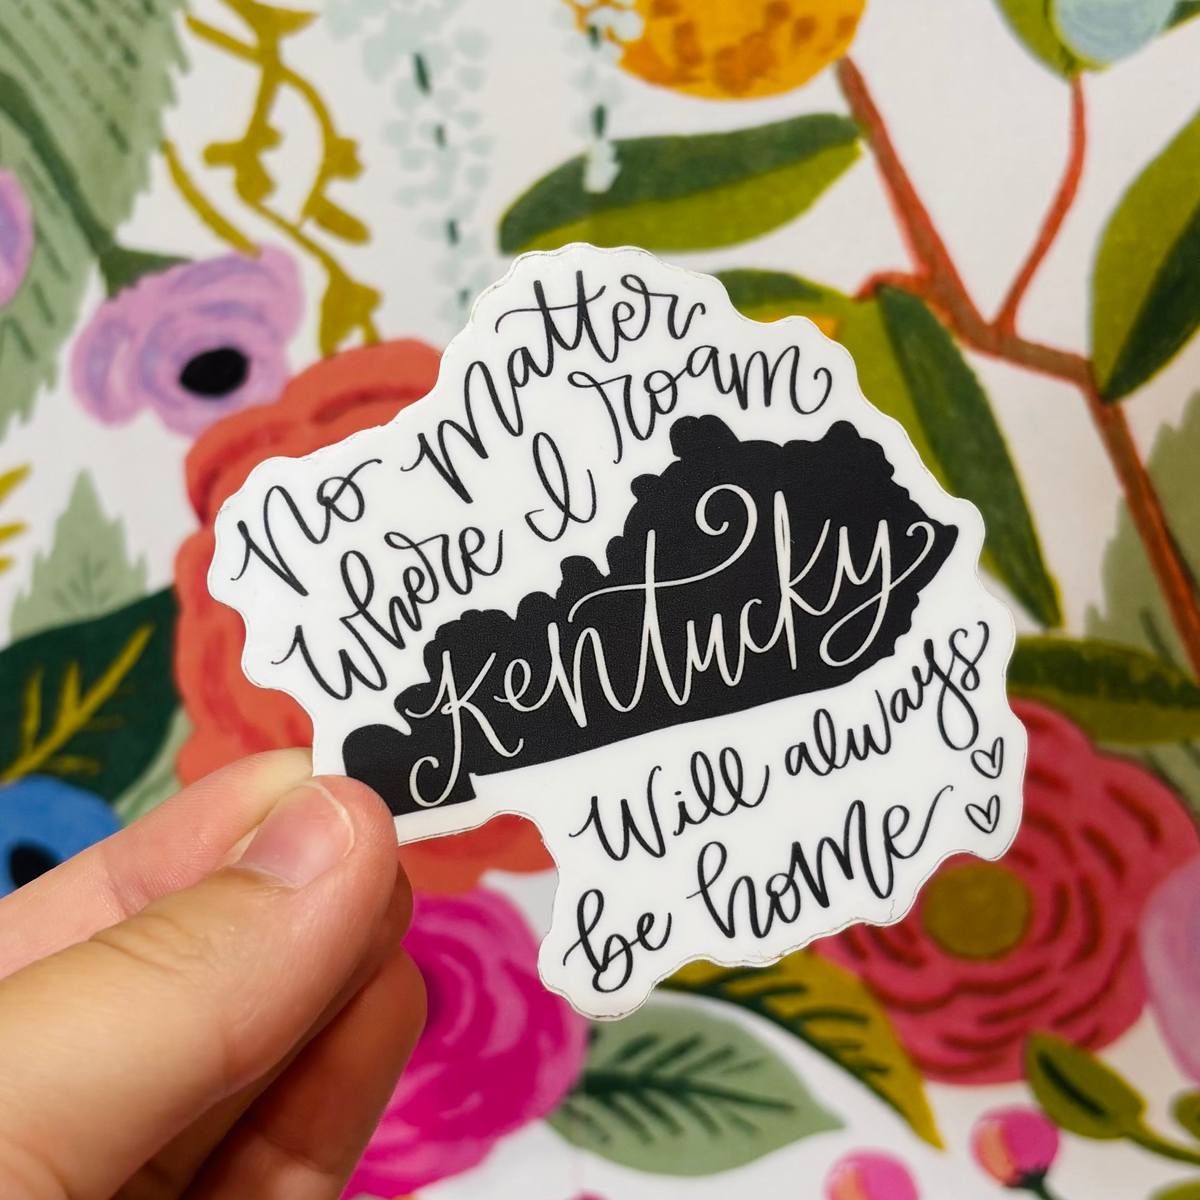 No Matter
where I roam
Kentucky
Will always
be home